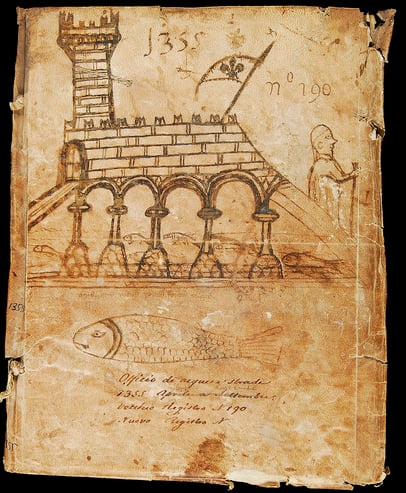 1355
nº 190
1355
Officio de acque e strade
1355 Aprile a Settembre
Vecchio Registro Nº 190
Nuovo Registro Nº